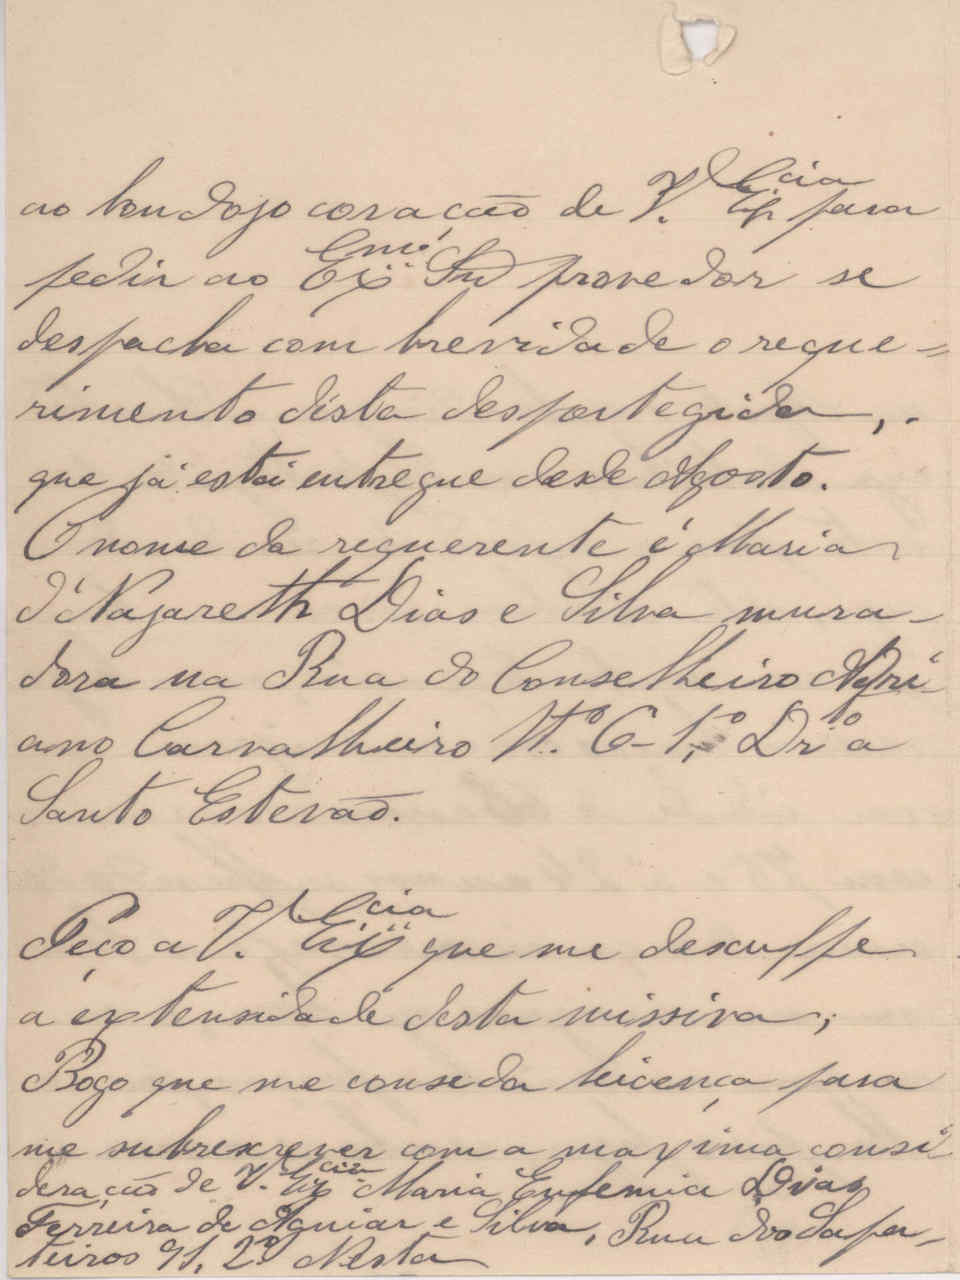 ao bondozo coração de V. Excia para
pedir ao Exmo Snr provedor se
despacha com brevidade o reque=
rimento désta desportegida,
que já está entregue desde Agosto.
O nome da requerente é Maria
d'Nazareth Dias e Silva mura-
dora na Rua do Conselheiro Adri-
ano Carvalheiro Nº 6-1º Drº a
Santo Estevão.
Peço a V. Excia que me desculpe
a extensidade desta missiva,
Rogo que me conseda leicença para
me subrescrever com a maxima consi
deração de V. Excia Maria Eufemia Dias
Ferreira de Aguiar e Silva, Rua dos Sapa-
teiros 91, 2º Nesta